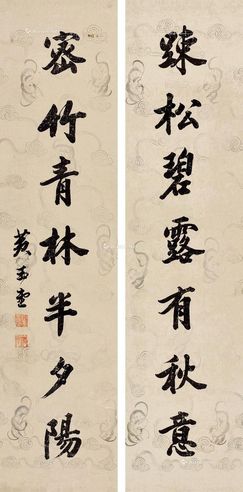 疎松碧露有秋意
密竹青林半夕陽